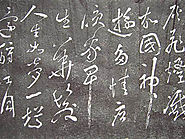 灰飛煙滅
故國神
遊多情應
笑我早
生華髮
人生如夢一樽
還酹江月